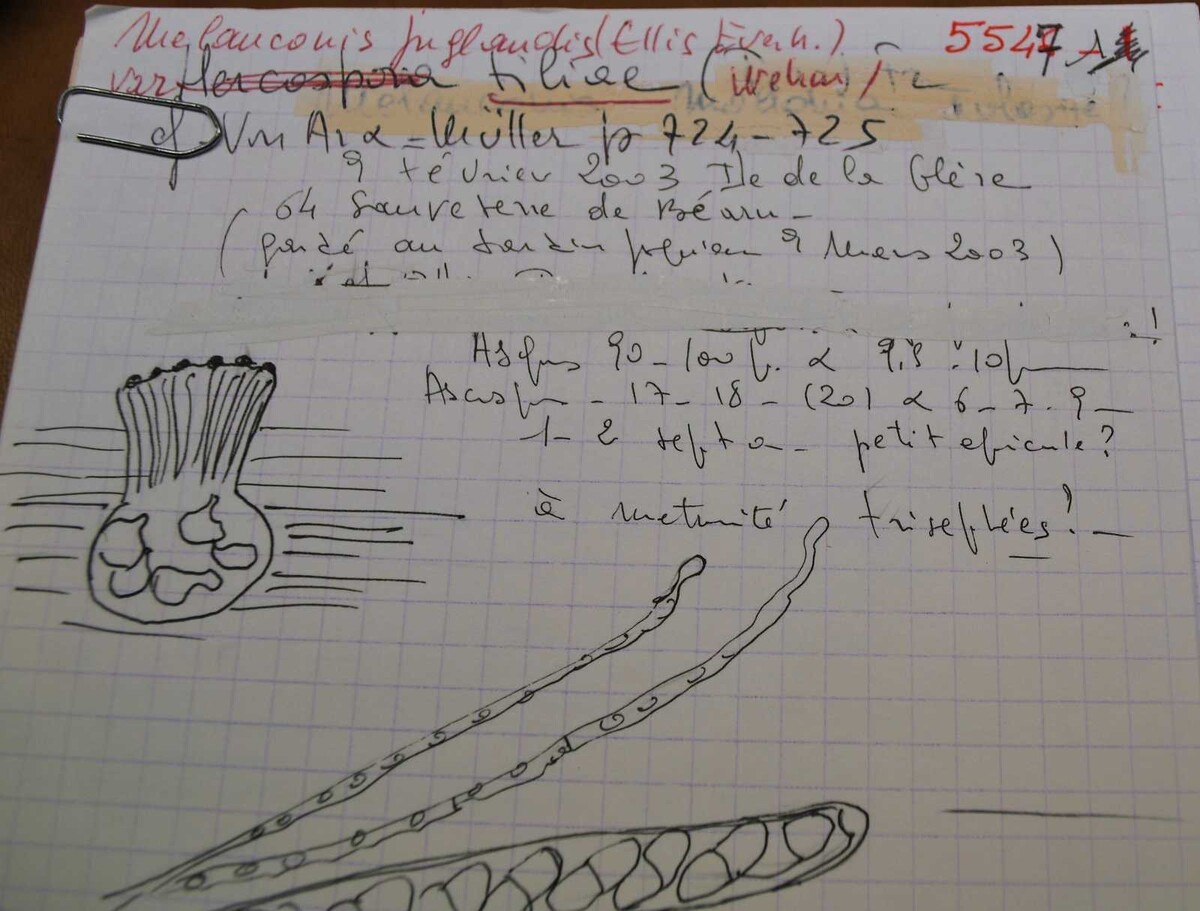 Melanconis juglandis (Ellis Everh.) 5547 A
var Hercospora tiliae
cf Von Arx - Müller p 724-725
9 février 2003 Ile de la Glère
64 Sauveterre de Béarn -
(gardé au jardin 9 Mars 2003)
Asques 90-100 µ x 9,5 10 µ
Ascosp - 17-18-(20) x 6-7-9-
1-2 septa - petit apicule?
à maturité triseptées? -